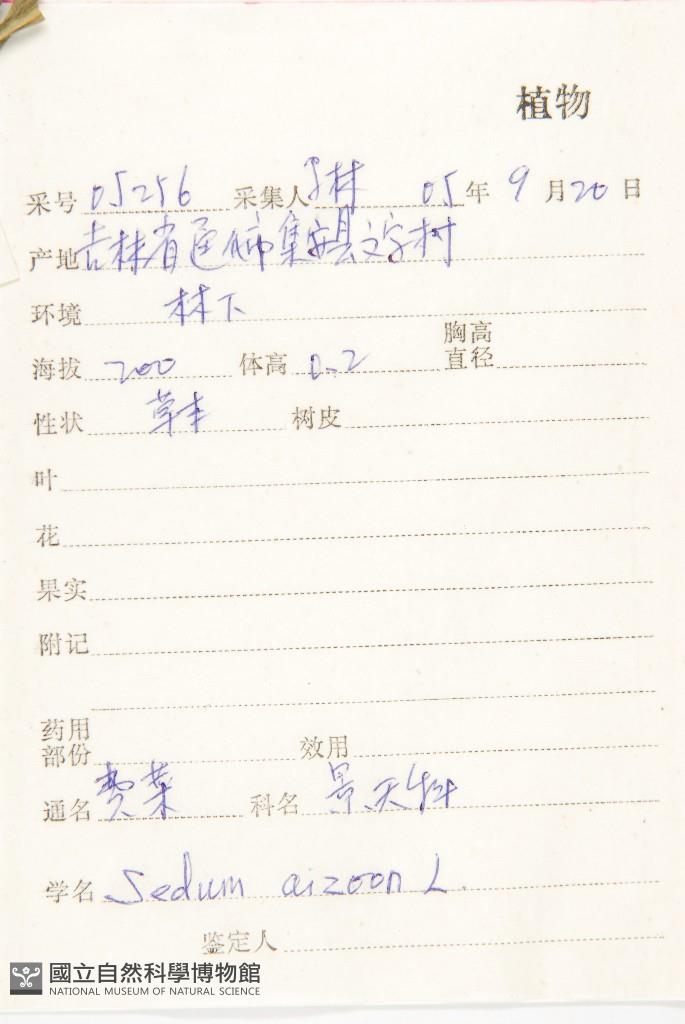 植物
采号 05256 采集人 林 05年 9月20日
产地 吉林省通化市集安县文字村
环境 林下
海拔 200 体高 0.2 胸高直径
性状 草本 树皮
叶
花
果实
附记
药用部份 效用
通名 费菜 科名 景天科
学名 Sedum aizoon L.
鉴定人
國立自然科學博物館
NATIONAL MUSEUM OF NATURAL SCIENCE